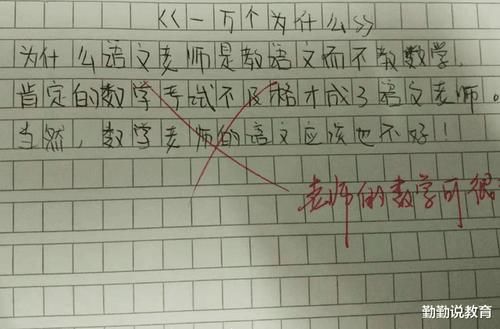 《一万个为什么》
为什么语文老师是教语文而不教数学,
肯定的数学考试不及格才成了语文老师。
当然,数学老师的语文应该也不好!
老师的数学可很
勤勤说教育